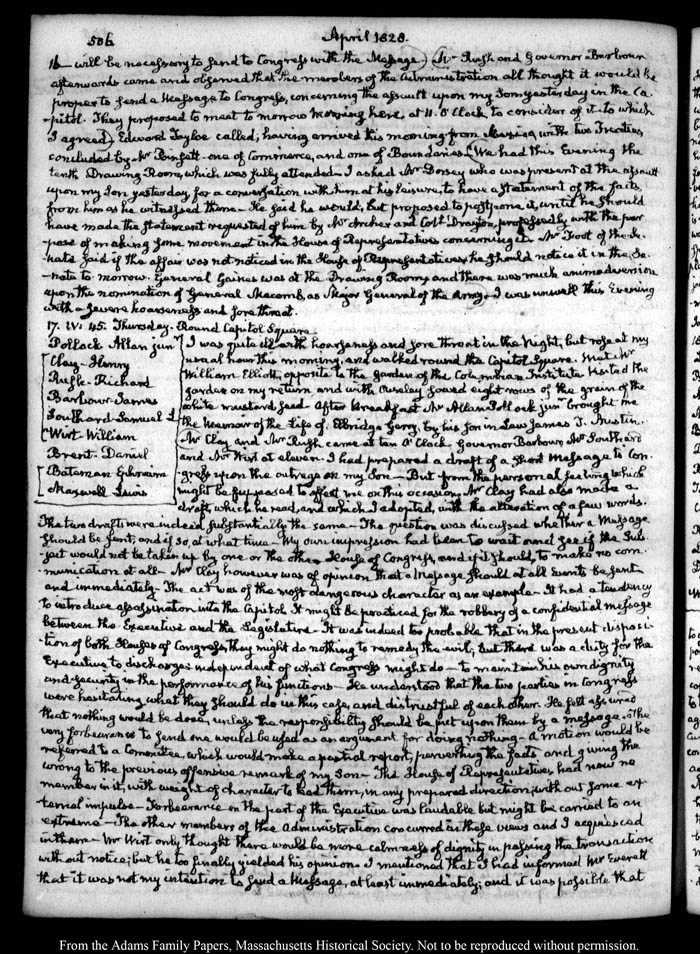 506
April 1828.
16— will be necessary to send to Congress with the Message) Mr Rush and Governor Barbour
afterwards came and observed that the members of the Administration all thought it would be
proper to send a Message to Congress, concerning the assault upon my Son yesterday in the Ca-
pitol. They proposed to meet to morrow morning here, at 11. O'Clock to consider of it— to which
I agreed) Edward Tayloe called; having arrived this morning from Mexico, with two Treaties,
concluded by Mr Poinsett— one of Commerce, and one of Boundaries. (We had this Evening the
tenth Drawing Room, which was fully attended— I asked Mr Dorsey who was present at the assault
upon my Son yesterday, for a conversation with him at his leisure, to have a statement of the facts,
from him as he witnessed them— He said he would, but proposed to postpone it, until he should
have made the Statement requested of him by Mr Archer and Coll. Drayton, professedly with the pur-
pose of making some movement in the House of Representatives concerning it. Mr Foot of the Se-
nate said if the affair was not noticed in the House of Representatives, he should notice it in the Se-
nate to morrow. General Gaines was at the Drawing Room, and there was much animadversion
upon the nomination of General Macomb, as Major General of the Army. I was unwell this Evening
with a severe hoarseness and sore throat.
17. IV: 45. Thursday. Round Capitol Square
Pollock Allan junr
Clay— Henry
Rush— Richard
Barbour— James
Southard— Samuel L
Wirt— William
Brent— Daniel
Bateman Ephraim
Maxwell Lewis
I was quite ill with hoarseness and sore throat in the Night, but rose at my
usual hour this morning, and walked round the Capitol Square. Met Mr
William Elliott, opposite to the garden of the Columbian Institute. Visited the
garden on my return, and with Ousley sowed eight rows of the grain of the
white mustard seed— After breakfast Mr Allan Pollock junr brought me
the Memoir of the Life of Elbridge Gerry, by his son in Law James T. Austin.
Mr Clay and Mr Rush came at ten O'Clock, Governor Barbour, Mr Southard
and Mr Wirt at eleven. I had prepared a draft of a short Message to Con-
gress upon the outrage on my Son— But from the personal feeling which
might be supposed to affect me on this occasion, Mr Clay had also made a
draft, which he read, and which I adopted, with the alteration of a few words.
The two drafts were indeed substantially the same— The question was discussed whether a Message
should be sent, and if so, at what time— My own impression had been to wait and see if the Sub-
ject would not be taken up by one or the other House of Congress, and if it should, to make no com-
munication at all— Mr Clay however was of opinion that a Message should at all events be sent
and immediately. The act was of the most dangerous character as an example— It had a tendency
to introduce assassination into the Capitol. It might be practiced for the robbery of a confidential message
between the Executive and the Legislature— It was indeed too probable that in the present disposi-
tion of both Houses of Congress they might do nothing to remedy the evil; but there was a duty for the
Executive to discharge independent of what Congress might do— to maintain his own dignity
and security in the performance of his functions— He understood that the two parties in Congress
were hesitating what they should do in this case, and distrustful of each other. He felt assured
that nothing would be done, unless the responsibility should be put upon them by a message. The
very forbearance to send one would be used as an argument for doing nothing— A motion would be
referred to a Committee, which would make a partial report, perverting the facts and giving the
wrong to the previous offensive remark of my Son— The House of Representatives had now no
member in it, with weight of character to lead them, in any prepared direction, without some ex-
ternal impulse— Forbearance on the part of the Executive was laudable but might be carried to an
extreme— The other members of the Administration concurred in these views and I acquiesced
in them— Mr Wirt only thought there would be more calmness of dignity in passing the transaction
without notice; but he too finally yielded his opinion. I mentioned that I had informed Mr Everett
that it was not my intention to send a Message, at least immediately; and it was possible that
From the Adams Family Papers, Massachusetts Historical Society. Not to be reproduced without permission.